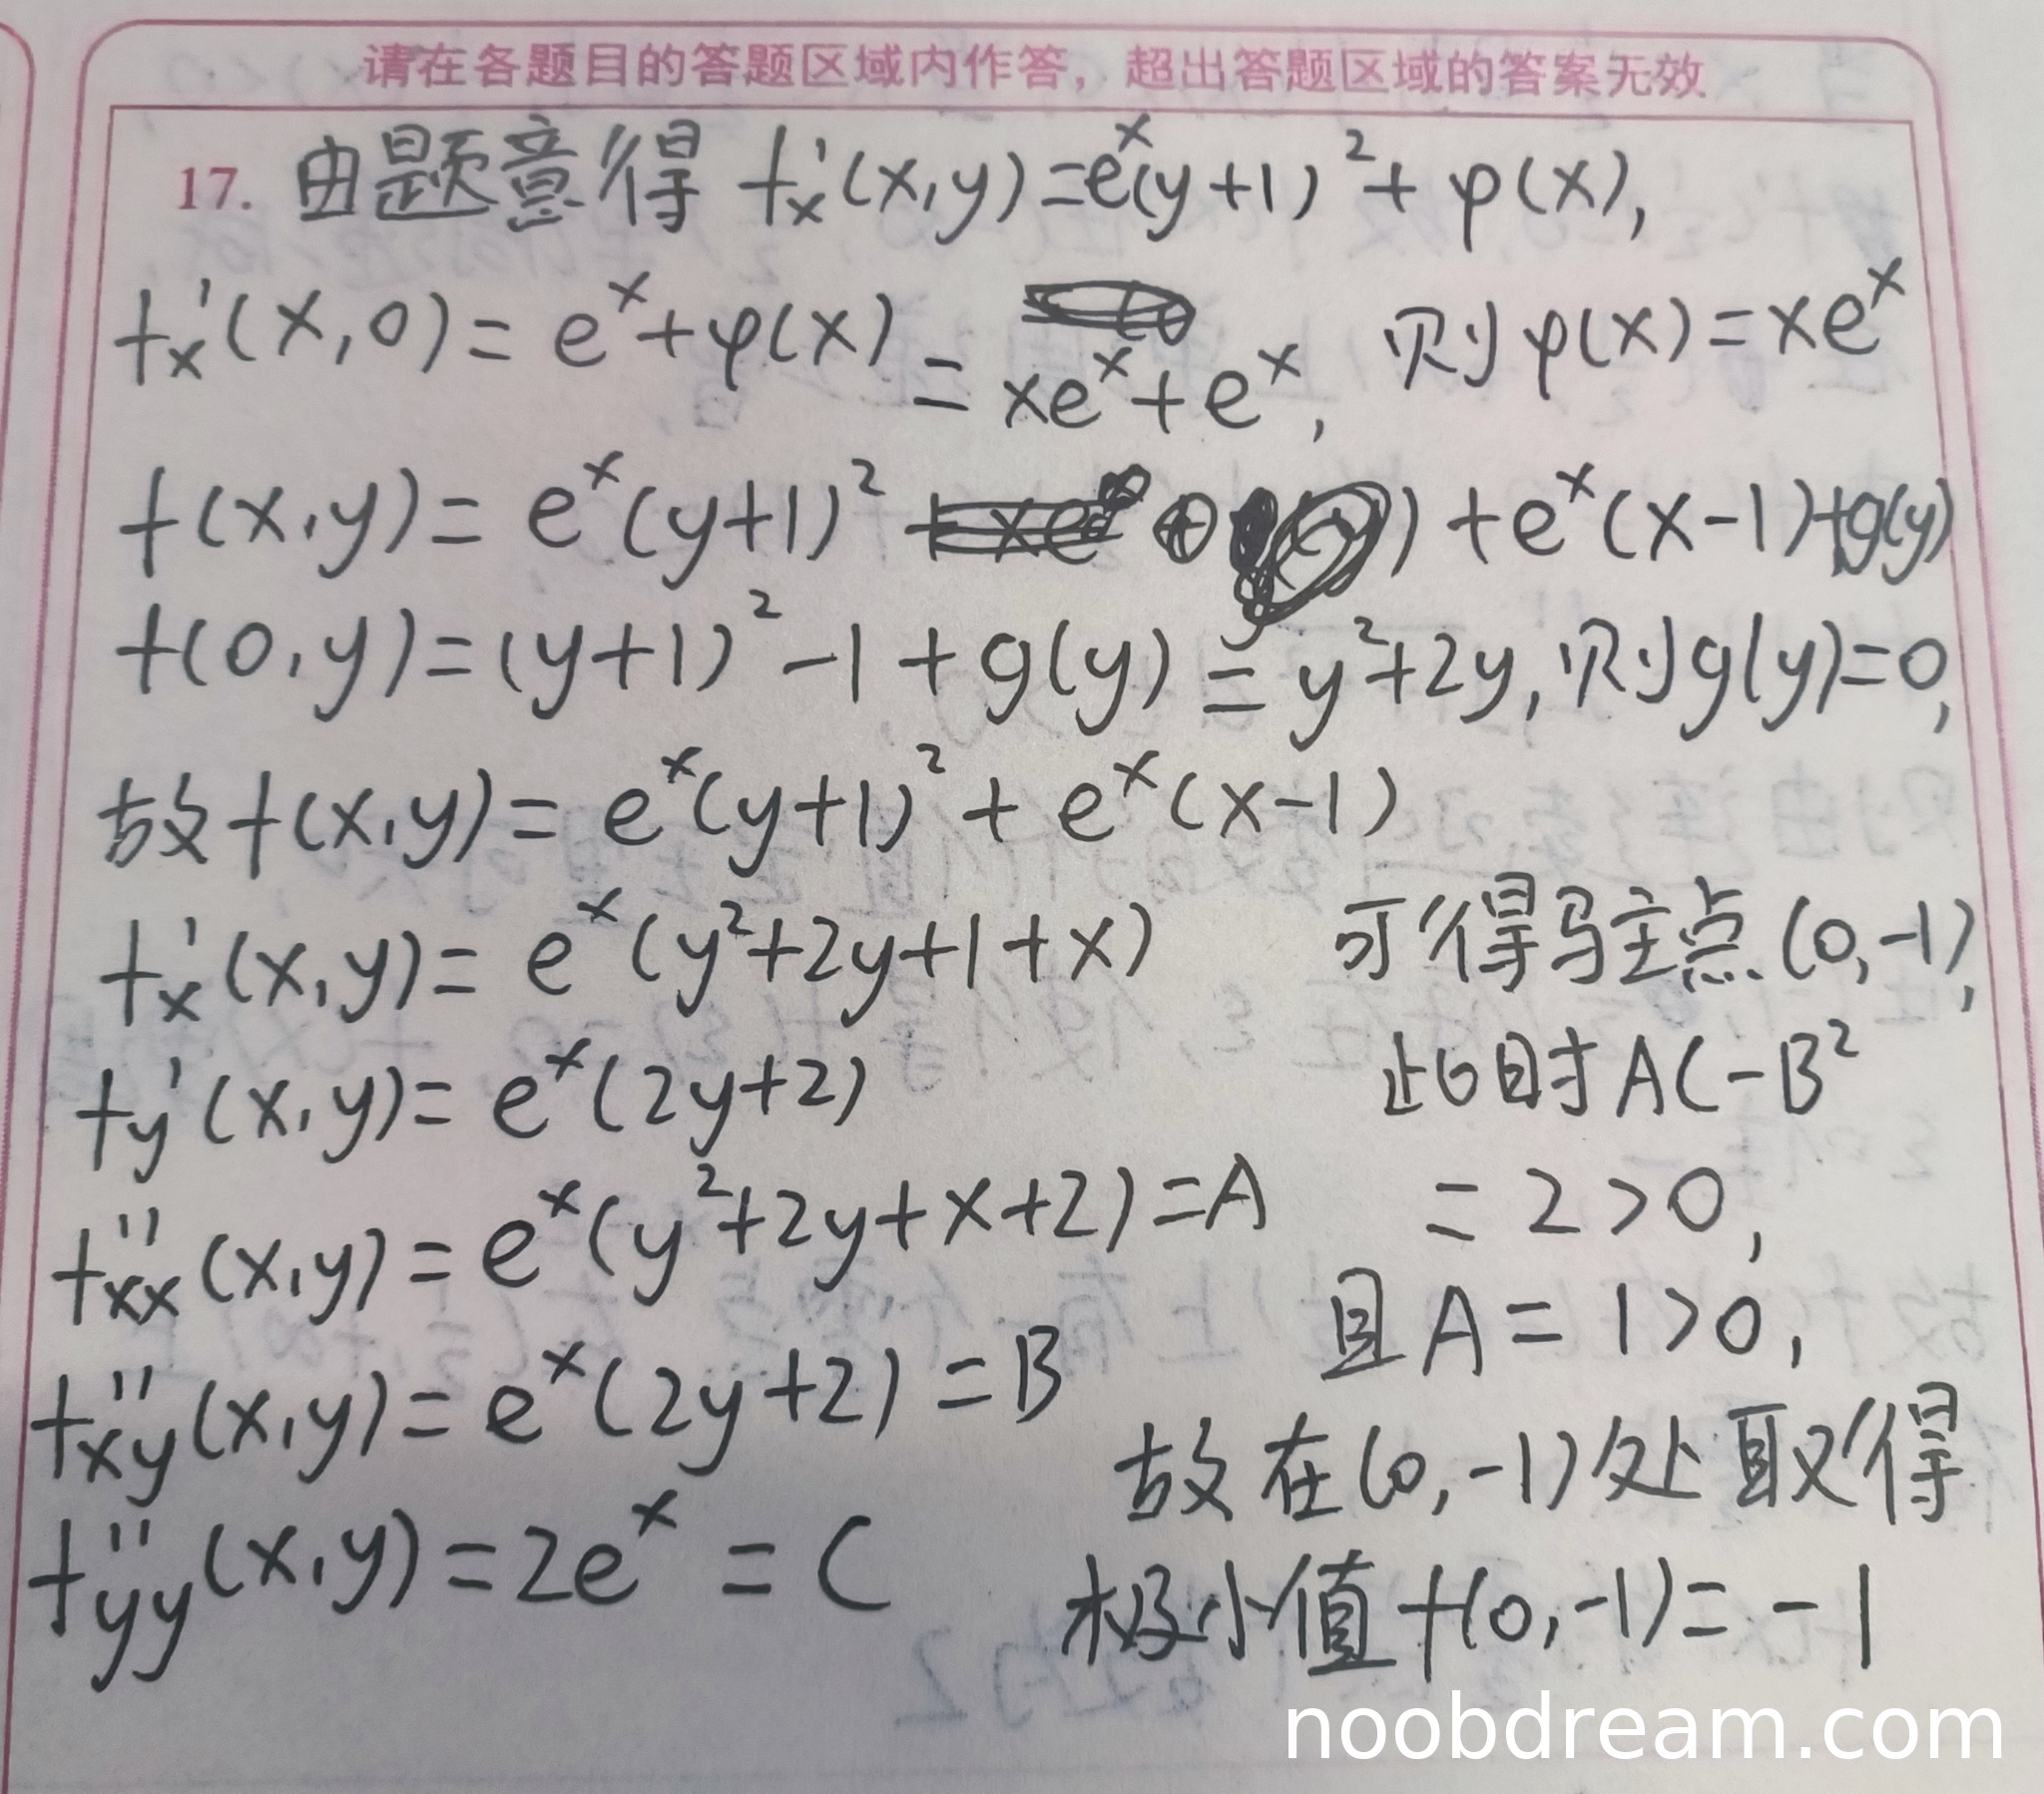 请在各题目的答题区域内作答，超出答题区域的答案无效
17. 由题意得 f'x(x,y)=e^x(y+1)^2+φ(x),
f'x(x,0)=e^x+φ(x)=xe^x+e^x, 则φ(x)=xe^x
f(x,y)=e^x(y+1)^2 ) +e^x(x-1)+g(y)
f(0,y)=(y+1)^2-1+g(y)=y^2+2y, 则g(y)=0,
故f(x,y)=e^x(y+1)^2+e^x(x-1)
f'x(x,y)=e^x(y^2+2y+1+x)
f'y(x,y)=e^x(2y+2)
f''xx(x,y)=e^x(y^2+2y+x+2)=A
f''xy(x,y)=e^x(2y+2)=B
f''yy(x,y)=2e^x=C
可得驻点(0,-1),
此时AC-B^2
=2>0,
且A=1>0,
故在(0,-1)处取得
极小值f(0,-1)=-1
noobdream.com